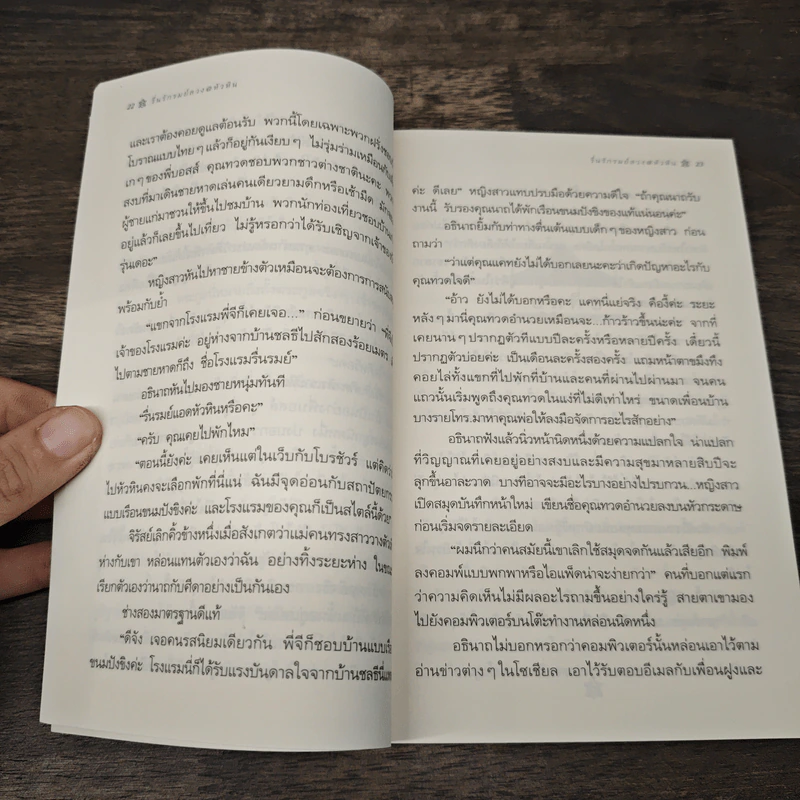 ๒๒ รื่นรักรมย์ตวง@หัวหิน
และเราต้องคอยดูแลต้อนรับ พวกนี้โดยเฉพาะพวกฝรั่ง
โบราณแบบไทยๆ แล้วก็อยู่กันเงียบๆ ไม่รุ่มร่ามเหมือนกับ
เกๆ ของพี่บอสส์ คุณทวดชอบพวกชาวต่างชาตินะคะ
สงบที่มาเดินชายหาดเล่นคนเดียวยามดึกหรือเช้ามืด
ผู้ชายแก่มาชวนให้ขึ้นไปชมบ้าน พวกนักท่องเที่ยวชอบบ้าน
อยู่แล้วก็เลยขึ้นไปเที่ยว ไม่รู้หรอกว่าได้รับเชิญจากเจ้าของ
รุ่นเดอะ”
หญิงสาวหันไปหาชายข้างตัวเหมือนจะต้องการการสนับสนุน
พร้อมกับย้ำ
“แขกจากโรงแรมพี่จีก็เคยเจอ...” ก่อนขยายว่า
เจ้าของโรงแรมค่ะ อยู่ห่างจากบ้านชลธีไปสักสองร้อยเมตร
ไปตามชายหาดก็ถึง ชื่อโรงแรมรื่นรมย์”
อธินาถหันไปมองชายหนุ่มทันที
“รื่นรมย์แอดหัวหินหรือคะ”
“ครับ คุณเคยไปพักไหม”
“ตอนนี้ยังค่ะ เคยเห็นแต่ในเว็บกับโบรชัวร์ แต่คิดว่า
ไปหัวหินคงจะเลือกพักที่นี่แน่ ฉันมีจุดอ่อนกับสถาปัตยกรรม
แบบเรือนขนมปังขิงค่ะ และโรงแรมของคุณก็เป็นสไตล์นี้ด้วย
จิรัสย์เลิกคิ้วข้างหนึ่งเมื่อสังเกตว่าแม่คนทรงสาววางตัว
ห่างกับเขา หล่อนแทนตัวเองว่าฉัน อย่างทิ้งระยะห่าง ในขณะ
เรียกตัวเองว่านาถกับศีตาอย่างเป็นกันเอง
ช่างสองมาตรฐานดีแท้
“ดีจัง เจอคนรสนิยมเดียวกัน พี่จีก็ชอบบ้านแบบเรือน
ขนมปังขิงค่ะ โรงแรมนี่ก็ได้รับแรงบันดาลใจจากบ้านชลธีนี่แหละ
รื่นรักรมย์ตวง@หัวหิน ๒๓
ค่ะ ดีเลย” หญิงสาวแทบปรบมือด้วยความดีใจ “ถ้าคุณนาถรับ
งานนี้ รับรองคุณนาถได้พักเรือนขนมปังขิงของแท้แน่นอนค่ะ”
อธินาถยิ้มกับท่าทางตื่นเต้นแบบเด็กๆ ของหญิงสาว ก่อน
ถามว่า
“ว่าแต่คุณแคทยังไม่ได้บอกเลยนะคะว่าเกิดปัญหาอะไรกับ
คุณทวดใจดี”
“อ้าว ยังไม่ได้บอกหรือคะ แคทนี่แย่จริง คืองี้ค่ะ ระยะ
หลังๆ มานี่คุณทวดอำนวยเหมือนจะ...ก้าวร้าวขึ้นน่ะค่ะ จากที่
เคยนานๆ ปรากฏตัวทีแบบปีละครั้งหรือหลายปีครั้ง เดี๋ยวนี้
ปรากฏตัวบ่อยค่ะ เป็นเดือนละครั้งสองครั้ง แถมหน้าตาขมึงทึง
คอยไล่ทั้งแขกที่ไปพักที่บ้านและคนที่ผ่านไปผ่านมา จนคน
แถวนั้นเริ่มพูดถึงคุณทวดในแง่ที่ไม่ดีเท่าไหร่ ขนาดเพื่อนบ้าน
บางรายโทร.มาหาคุณพ่อให้ลงมือจัดการอะไรสักอย่าง”
อธินาถฟังแล้วนิ่วหน้านิดหนึ่งด้วยความแปลกใจ น่าแปลก
ที่วิญญาณที่เคยอยู่อย่างสงบและมีความสุขมาหลายสิบปีจะ
ลุกขึ้นอาละวาด บางทีอาจจะมีอะไรบางอย่างไปรบกวน...หญิงสาว
เปิดสมุดบันทึกหน้าใหม่ เขียนชื่อคุณทวดอำนวยลงบนหัวกระดาษ
ก่อนเริ่มจดรายละเอียด
“ผมนึกว่าคนสมัยนี้เขาเลิกใช้สมุดจดกันแล้วเสียอีก พิมพ์
ลงคอมพ์แบบพกพาหรือไอแพ็ดน่าจะง่ายกว่า” คนที่บอกแต่แรก
ว่าความคิดเห็นไม่มีผลอะไรถามขึ้นอย่างใคร่รู้ สายตาเขามอง
ไปยังคอมพิวเตอร์บนโต๊ะทำงานหล่อนนิดหนึ่ง
อธินาถไม่บอกหรอกว่าคอมพิวเตอร์นั้นหล่อนเอาไว้ตาม
อ่านข่าวต่างๆ ในโซเชียล เอาไว้รับตอบอีเมลกับเพื่อนฝูงและ